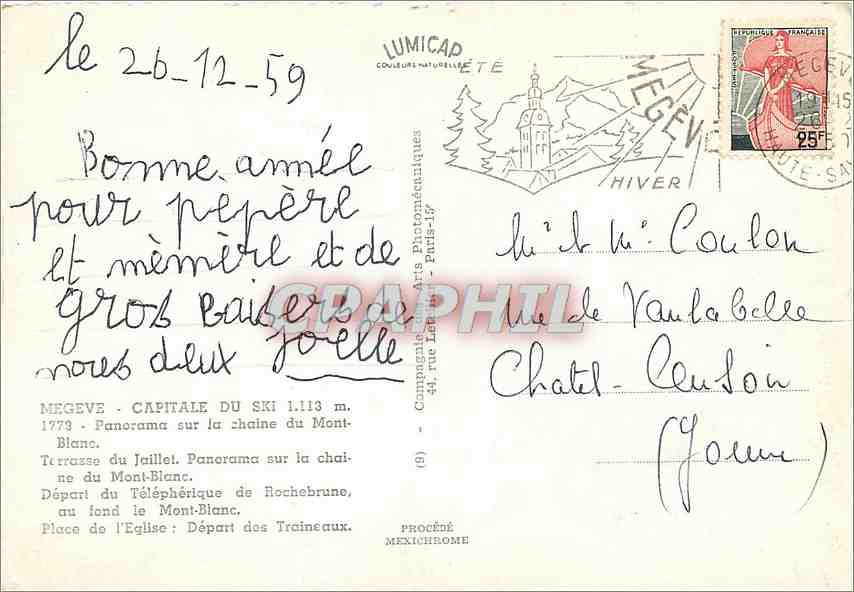 le 26-12-59
Bonne année
pour pépère
et mèmère et de
gros Baisers de
nous deux Joelle
MEGEVE - CAPITALE DU SKI 1.113 m.
1773 - Panorama sur la chaine du Mont-
Blanc.
Terrasse du Jaillet. Panorama sur la chai-
ne du Mont-Blanc.
Départ du Téléphérique de Rochebrune,
au fond le Mont-Blanc.
Place de l'Eglise : Départ des Traineaux.
LUMICAP
COULEURS NATURELLES
(9) - Compagnie Arts Photomécaniques
44, rue - Paris-15e
PROCÉDÉ
MEXICHROME
ÉTÉ
MEGÈVE
HIVER
REPUBLIQUE FRANÇAISE
25F
MEGÈVE
HAUTE-SA
Mr et Me Coulon
rue de Vaulabelle
Chatel-Censoir
(Yonne)
CPAPHIL